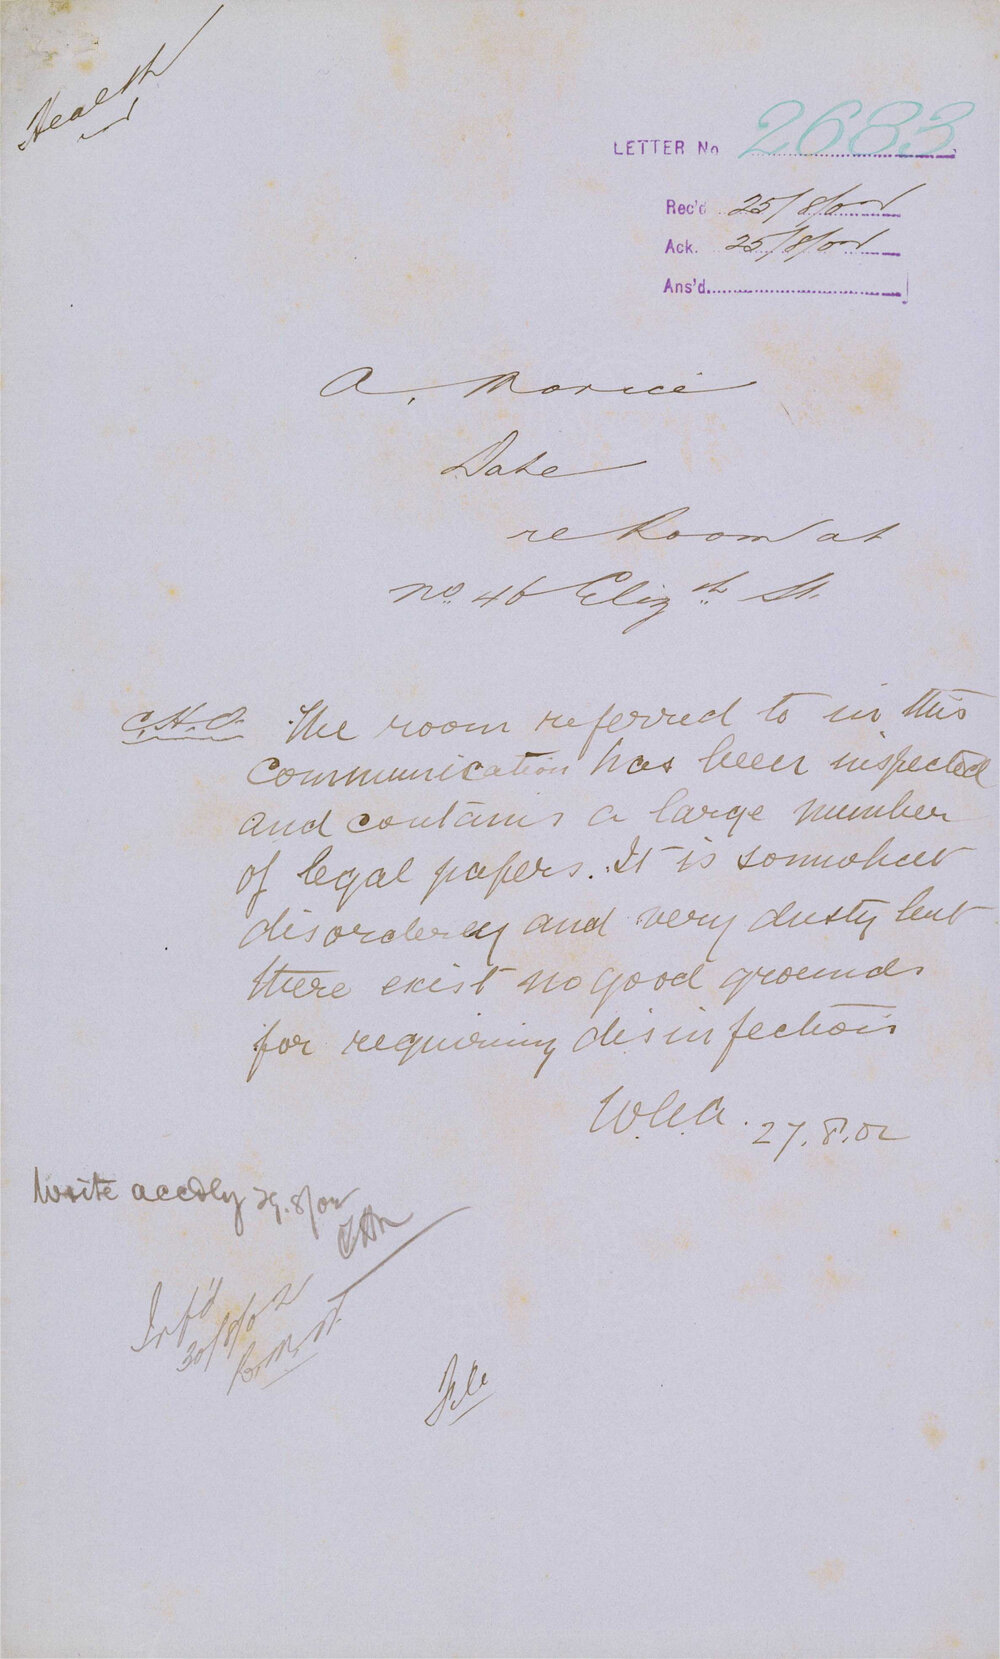 Health
LETTER No 2683
Rec'd 25/8/02
Ack. 25/8/02
Ans'd
A. Morice
Date
re Room at
No. 46 Eliz.th St.
C.H.O. The room referred to in this
communication has been inspected
and contains a large number
of legal papers. It is somewhat
disorderly and very dusty but
there exist no good grounds
for requiring disinfection
27.8.02
Write accdly 29.8/02
Inf'd
30/8/02
File